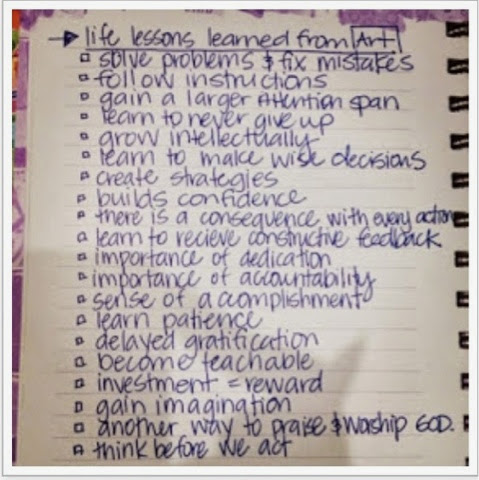 life lessons learned from Art
solve problems & fix mistakes
follow instructions
gain a larger Attention span
learn to never give up
grow intellectually
learn to make wise decisions
create strategies
builds confidence
there is a consequence with every action
learn to recieve constructive feedback
importance of dedication
importance of accountability
sense of acomplishment
learn patience
delayed gratification
become teachable
investment = reward
gain imagination
another way to praise & worship GOD.
think before we act